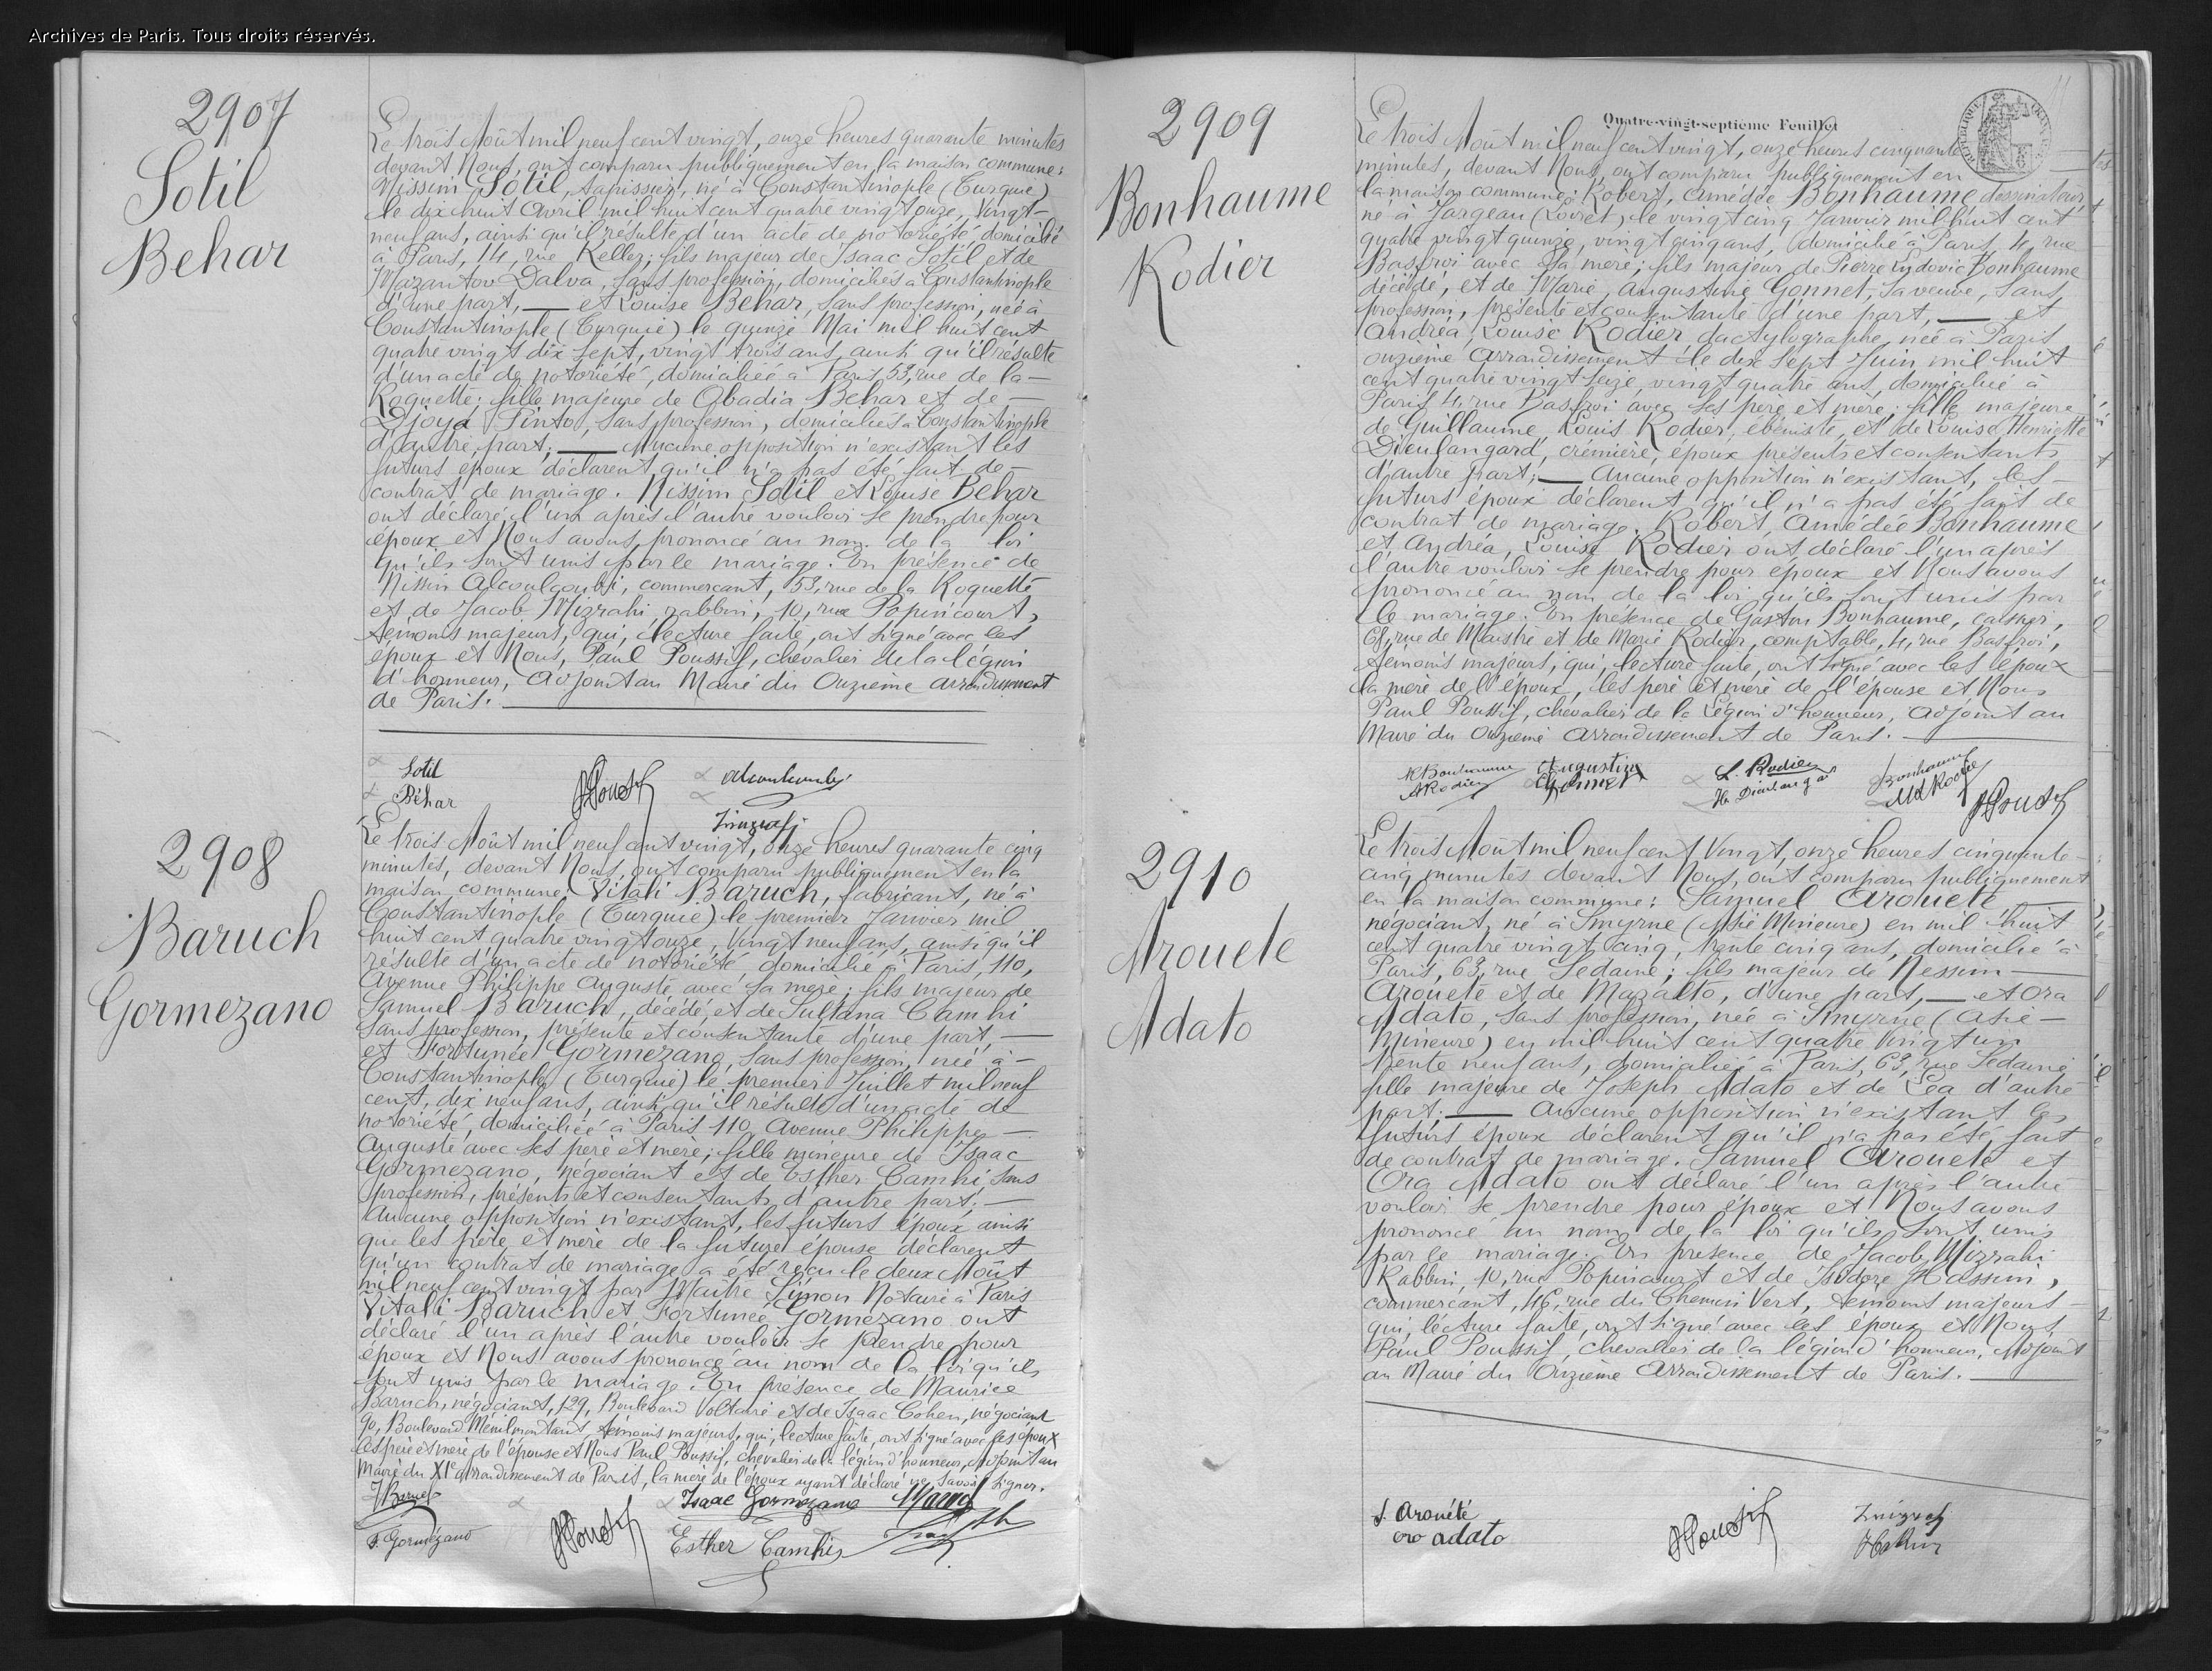 Archives de Paris. Tous droits réservés.
2907
Sotil
Behar
Le trois Août mil neuf cent vingt, onze heures quarante minutes
devant Nous, ont comparu publiquement en la maison commune:
Nissim Sotil, tapissier, né à Constantinople (Turquie)
le dix huit Avril mil huit cent quatre vingt onze, Vingt-
neuf ans, ainsi qu'il résulte d'un acte de notoriété, domicilié
à Paris, 14, rue Keller; fils majeur de Isaac Sotil et de
Mazantov Dalva, sans profession, domiciliés à Constantinople
d'une part, — et Louise Behar, sans profession, née à
Constantinople (Turquie) le quinze Mai mil huit cent
quatre vingt dix sept, vingt trois ans, ainsi qu'il résulte
d'un acte de notoriété, domiciliée à Paris, 53, rue de la —
Roquette; fille majeure de Obadia Behar et de —
Djoya Pinto, sans profession, domiciliés à Constantinople
d'autre part; — Aucune opposition n'existant les
futurs époux déclarent qu'il n'a pas été fait de —
contrat de mariage. Nissim Sotil et Louise Behar
ont déclaré l'un après l'autre vouloir se prendre pour
époux et Nous avons prononcé au nom de la loi
qu'ils sont unis par le mariage. En présence de
Nissim Alcoulcoubi, commerçant, 53, rue de la Roquette
et de Jacob Mizrahi, rabbin, 10, rue Popincourt,
témoins majeurs, qui, lecture faite, ont signé avec les
époux et Nous, Paul Poussif, chevalier de la légion
d'honneur, Adjoint au Maire du Onzième arrondissement
de Paris.
Sotil
Béhar
2908
Baruch
Gormezano
Le trois Août mil neuf cent vingt, onze heures quarante cinq
minutes, devant Nous, ont comparu publiquement en la
maison commune: Vitali Baruch, fabricant, né à
Constantinople (Turquie) le premier Janvier mil
huit cent quatre vingt onze, Vingt neuf ans, ainsi qu'il
résulte d'un acte de notoriété, domicilié à Paris, 110,
Avenue Philippe Auguste avec sa mère; fils majeur de
Samuel Baruch, décédé, et de Sultana Camhi
sans profession, présente et consentante d'une part, —
et Fortunée Gormezano, sans profession, née à —
Constantinople (Turquie) le premier Juillet mil neuf
cent, dix neuf ans, ainsi qu'il résulte d'un acte de
notoriété, domiciliée à Paris 110, Avenue Philippe —
Auguste avec ses père et mère; fille mineure de Isaac
Gormezano, négociant et de Esther Camhi, sans
profession, présents et consentants d'autre part; —
Aucune opposition n'existant, les futurs époux ainsi
que les père et mère de la future épouse déclarent
qu'un contrat de mariage a été reçu le deux Août
mil neuf cent vingt par Maître Simon Notaire à Paris
Vitali Baruch et Fortunée Gormezano ont
déclaré l'un après l'autre vouloir se prendre pour
époux et Nous avons prononcé au nom de la loi qu'ils
sont unis par le mariage. En présence de Maurice
Baruch, négociant, 129, Boulevard Voltaire et de Isaac Cohen, négociant
90, Boulevard Ménilmontant, témoins majeurs, qui, lecture faite, ont signé avec les époux
les père et mère de l'épouse et Nous Paul Poussif, chevalier de la légion d'honneur, Adjoint au
Maire du XIe arrondissement de Paris, la mère de l'époux ayant déclaré ne savoir signer.
Isaac Gormezano
F. Gormézano
Esther Camhi
Quatre-vingt-septième Feuillet
2909
Bonhaume
Rodier
Le trois Août mil neuf cent vingt, onze heures cinquante
minutes, devant Nous, ont comparu publiquement en
la maison commune: Robert, Amédée Bonhaume, dessinateur,
né à Jargeau (Loiret) le vingt cinq Janvier mil huit cent
quatre vingt quinze, vingt cinq ans, domicilié à Paris, 4, rue
Basfroi avec sa mère; fils majeur de Pierre Ludovic Bonhaume
décédé, et de Marie, Augustine Gonnet, sa veuve, sans
profession, présente et consentante d'une part, — et
Andréa, Louise Rodier dactylographe, née à Paris
onzième arrondissement le dix sept Juin mil huit
cent quatre vingt seize, vingt quatre ans, domiciliée à
Paris 4, rue Basfroi avec ses père et mère; fille majeure
de Guillaume, Louis Rodier, ébéniste, et de Louise, Henriette
Dieulangard, crémière, époux présents et consentants
d'autre part; — Aucune opposition n'existant, les —
futurs époux déclarent qu'il n'a pas été fait de
contrat de mariage. Robert, Amédée Bonhaume
et Andréa, Louise Rodier ont déclaré l'un après
l'autre vouloir se prendre pour époux et Nous avons
prononcé au nom de la loi qu'ils sont unis par
le mariage. En présence de Gaston Bonhaume, caissier,
68, rue de Maistre et de Marie Rodier, comptable, 4, rue Basfroi,
témoins majeurs, qui, lecture faite, ont signé avec les époux
la mère de l'époux, les père et mère de l'épouse et Nous
Paul Poussif, chevalier de la Légion d'honneur, Adjoint au
Maire du Onzième arrondissement de Paris.
Augustine
Gonnet
L. Rodier
Bonhaume
ARodier
2910
Arouete
Adato
Le trois Août mil neuf cent Vingt, onze heures cinquante —
cinq minutes devant Nous, ont comparu publiquement
en la maison commune: Samuel Arouete —
négociant, né à Smyrne (Asie Mineure) en mil huit
cent quatre vingt cinq, trente cinq ans, domicilié à
Paris, 63, rue Sedaine; fils majeur de Nessim —
Arouete et de Mazalto, d'une part, — et Ora
Adato, sans profession, née à Smyrne (Asie —
Mineure) en mil huit cent quatre vingt un
trente neuf ans, domiciliée à Paris, 63, rue Sedaine
fille majeure de Joseph Adato et de Léa d'autre
part; — Aucune opposition n'existant les
futurs époux déclarent qu'il n'a pas été fait
de contrat de mariage. Samuel Arouete et
Ora Adato ont déclaré l'un après l'autre
vouloir se prendre pour époux et Nous avons
prononcé au nom de la loi qu'ils sont unis
par le mariage. En présence de Jacob Mizrahi
Rabbin, 10, rue Popincourt et de Isidore Hassin,
commerçant, 46, rue du Chemin Vert, témoins majeurs —
qui, lecture faite, ont signé avec les époux et Nous
Paul Poussif, chevalier de la légion d'honneur, Adjoint
au Maire du Onzième Arrondissement de Paris.
S. Arouété
oro adato